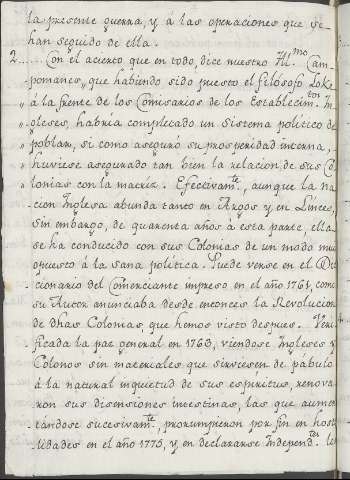 la presente guerra, y á las operaciones que se
han seguido de ella.
2......Con el acierto que en todo, dice nuestro Ill.mo Cam-
pomanes, que habiendo sido puesto el filosofo Loke
á la frente de los Comisarios de los Establecim.tos In-
gleses, habria completado un Sistema politico de
poblar, si como aseguró su prosperidad interna,
huviese asegurado tan bien la relacion de sus Co-
lonias con la matriz. Efectivam.te, aunque la na-
cion Inglesa abunda tanto en Argos y en Linces,
Sin embargo, de quarenta años á esta parte, ella
se ha conducido con sus Colonias de un modo muy
opuesto á la sana politica. Puede verse en el Dic-
cionario del Comerciante impreso en el año 1761, como
su Autor anunciaba desde entonces la Revolucion
de dhas Colonias, que hemos visto despues. Veri-
ficada la paz general en 1763, viendose Ingleses y
Colonos sin materiales que sirviesen de pábulo
á la natural inquietud de sus espiritus, renova-
ron sus disensiones intestinas, las que aumen-
tándose sucesivam.te, prorumpieron por fin en hosti-
lidades en el año 1775, y en declararse Independ.tes